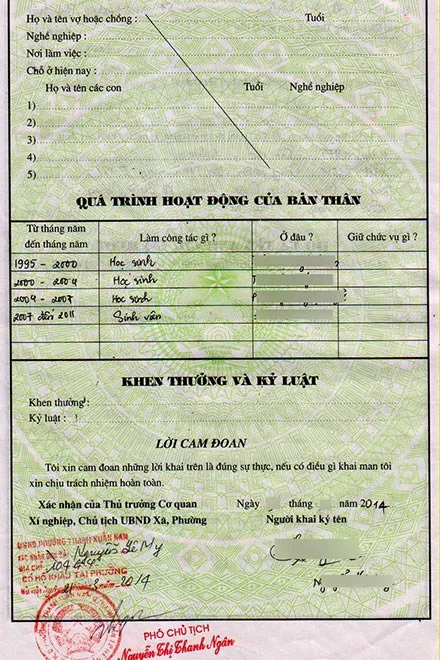 Họ và tên vợ hoặc chồng : Tuổi
Nghề nghiệp :
Nơi làm việc :
Chỗ ở hiện nay :
Họ và tên các con Tuổi Nghề nghiệp
1)
2)
3)
4)
5)
QUÁ TRÌNH HOẠT ĐỘNG CỦA BẢN THÂN
Từ tháng năm đến tháng năm Làm công tác gì ? Ở đâu ? Giữ chức vụ gì ?
1995 - 2000 Học sinh
2000 - 2004 Học sinh
2004 - 2007 Học sinh
2007 đến 2011 Sinh viên
KHEN THƯỞNG VÀ KỶ LUẬT
Khen thưởng :
Kỷ luật :
LỜI CAM ĐOAN
Tôi xin cam đoan những lời khai trên là đúng sự thực, nếu có điều gì khai man tôi
xin chịu trách nhiệm hoàn toàn.
Xác nhận của Thủ trưởng Cơ quan Ngày tháng năm 2014
Xí nghiệp, Chủ tịch UBND Xã, Phường Người khai ký tên
CÓ HỘ KHẨU TẠI PHƯỜNG
2014
PHÓ CHỦ TỊCH
Nguyễn Thị Thanh Ngân